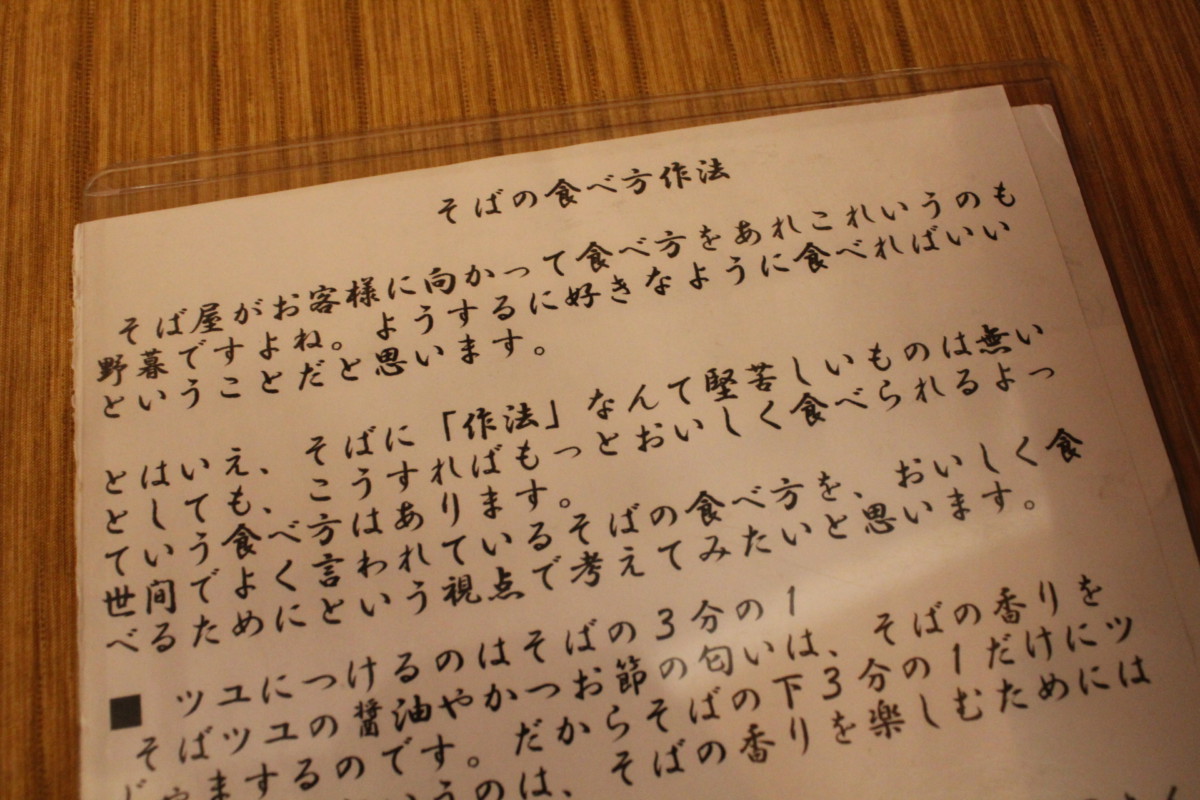 そばの食べ方作法
そば屋がお客様に向かって食べ方をあれこれいうのも
野暮ですよね。ようするに好きなように食べればいい
ということだと思います。
とはいえ、そばに「作法」なんて堅苦しいものは無い
としても、こうすればもっとおいしく食べられるよっ
ていう食べ方はあります。
世間でよく言われているそばの食べ方を、おいしく食
べるためにという視点で考えてみたいと思います。
■ ツユにつけるのはそばの3分の1
そばツユの醤油やかつお節の匂いは、そばの香りを
じゃまするのです。だからそばの下3分の1だけにツ
いうのは、そばの香りを楽しむためには